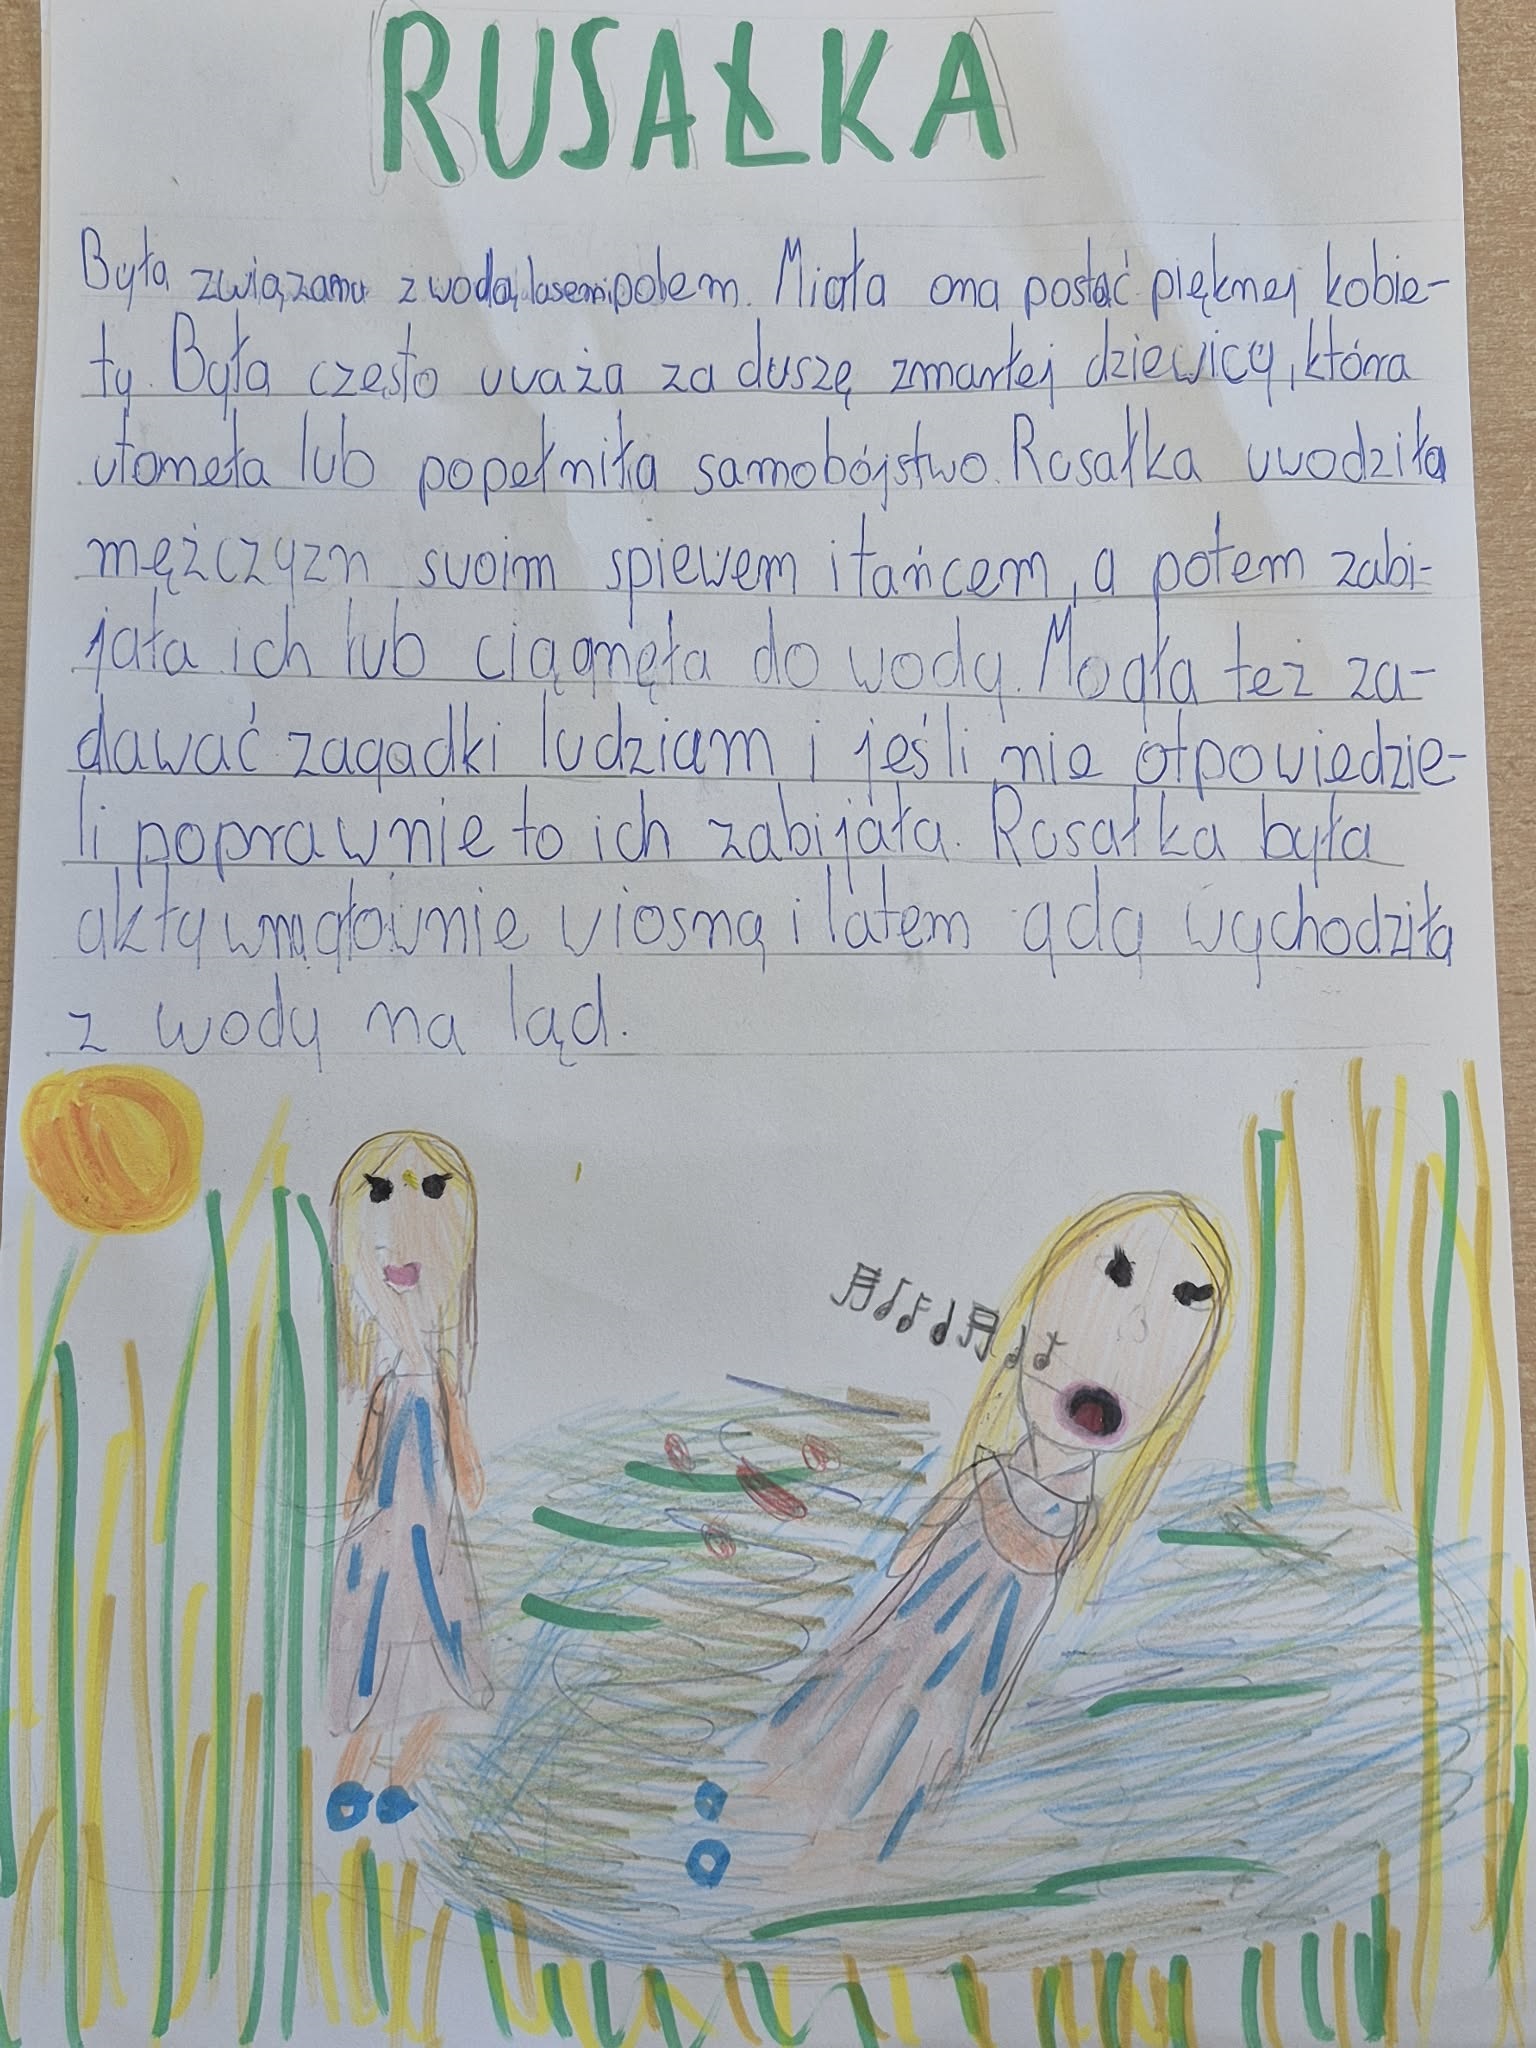 RUSAŁKA
Była związana z wodą, lasem i polem. Miała ona postać pięknej kobie-
ty. Była często uważa za duszę zmarłej dziewicy, która
utomeła lub popełniła samobójstwo. Rusałka uwodziła
mężczyzn swoim spiewem i tańcem, a potem zabi-
jała ich lub ciągnęła do wody. Mogła też za-
dawać zagadki ludziam i jeśli nie otpowiedzie-
li poprawnie to ich zabijała. Rusałka była
aktywna głównie wiosną i latem gdy wychodziła
z wody na ląd.